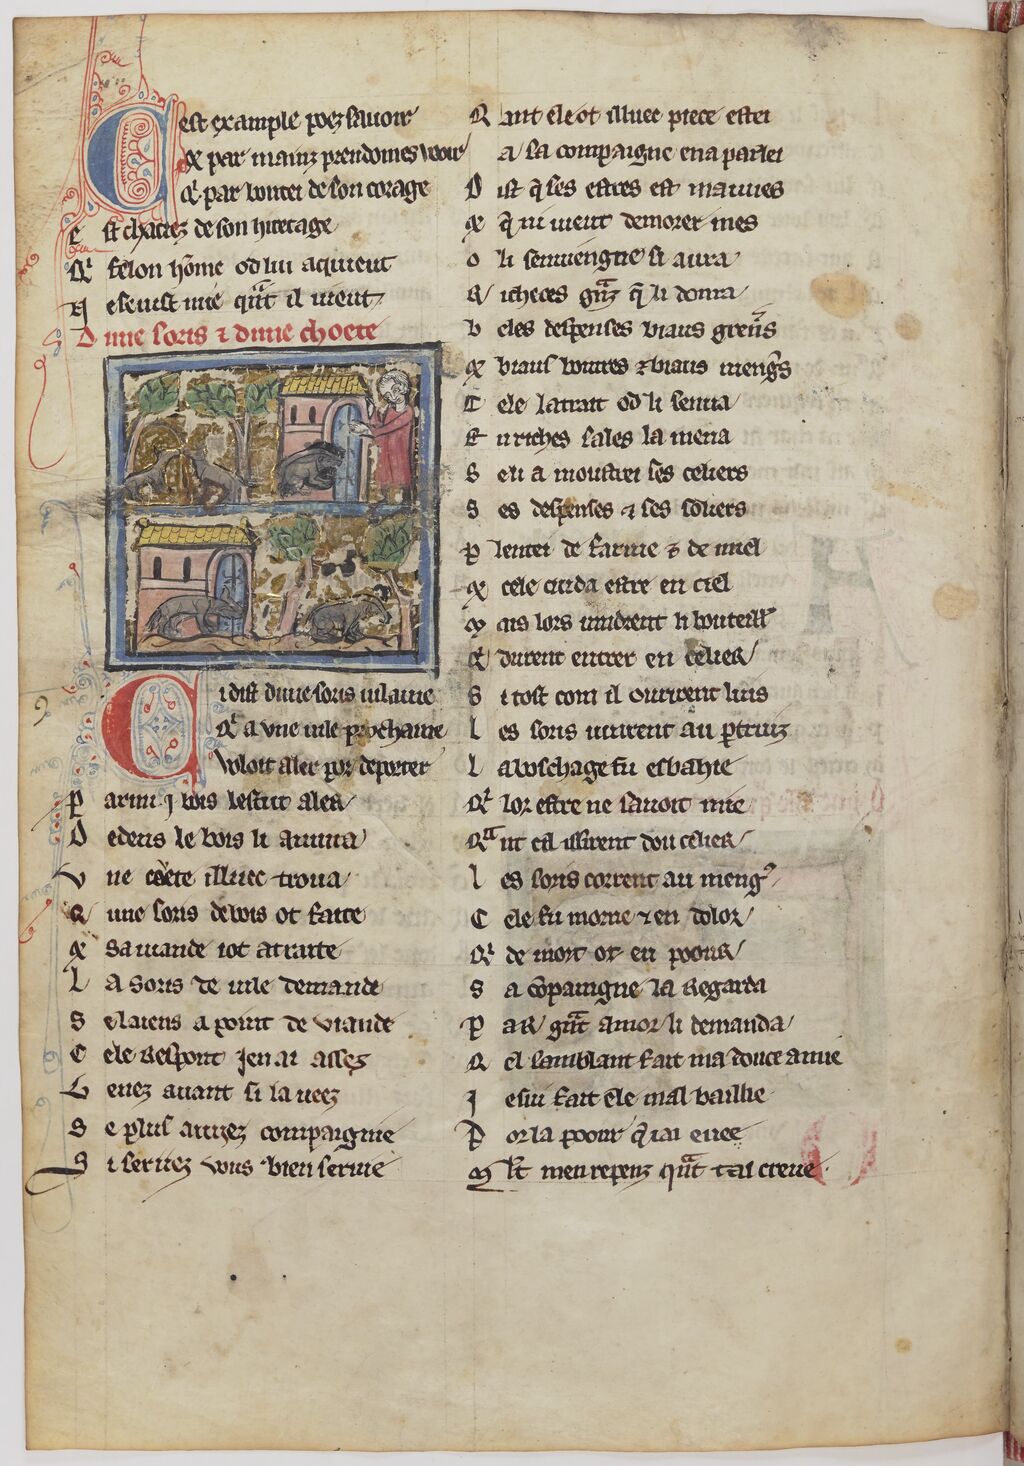 Cest example poez savoir
& par mainz preudomes veoir
Qͥ par bontei de son corage
est chaciez de son hiretage
Qͥ felon home od lui aquieut
N eseust mie qͣt il vieut
D une soris & dune choete
Ci dist dune soris vilaine
Qͥ a une vile prochaine
Voloit aler por deporter
P armi j bois lestut aler
D edens le bois li anuita
V ne coete illuec trova
Q une soris de bois ot faite
& sa viande i ot atraite
L a soris de vile demande
S elaiens a point de viande
C ele respont jen ai assez
V enez avant si la veez
S e plus aviyez compaignie
S i seriiez vous bien servie
Q ant ele ot illuec piece estei
A sa compaigne en a parlei
D ist q̃ ses estres est mauves
& q̃ ni vieut demorer mes
O li senviengne si aura
R icheces grͣz q̃ li donra
B eles despenses biaus greniers
& biaus boutes & biaus mengers
C ele latrait od li senva
E n riches sales la mena
S eli a moustrei ses celiers
S es despenses & ses soliers
P lentei de farine & de miel
& cele cuida estre en ciel
M ais lors vindrent li bouteillr
Qͥ durent entrer en celier
S i tost com il ouvrirent luis
L es soris vinrent au ptruiz
L a boschage fu esbahie
Qͥ lor estre ne savoit mie
Qͣnt cil issirent dou celier
L es soris corrent au meng
C ele fu morne & en dolor
Qͥ de mort ot eu poour
S a cõpaingne la regarda
P ar grͣt amor li demanda
Q el samblant fait ma douce amie
J e sui fait ele mal baillie
P or la poour q̃ iai euee
M lt men repenz qͣt tai creue